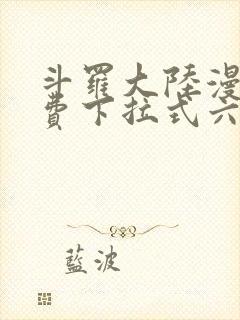 斗羅大陸漫
費下拉式六
藍波